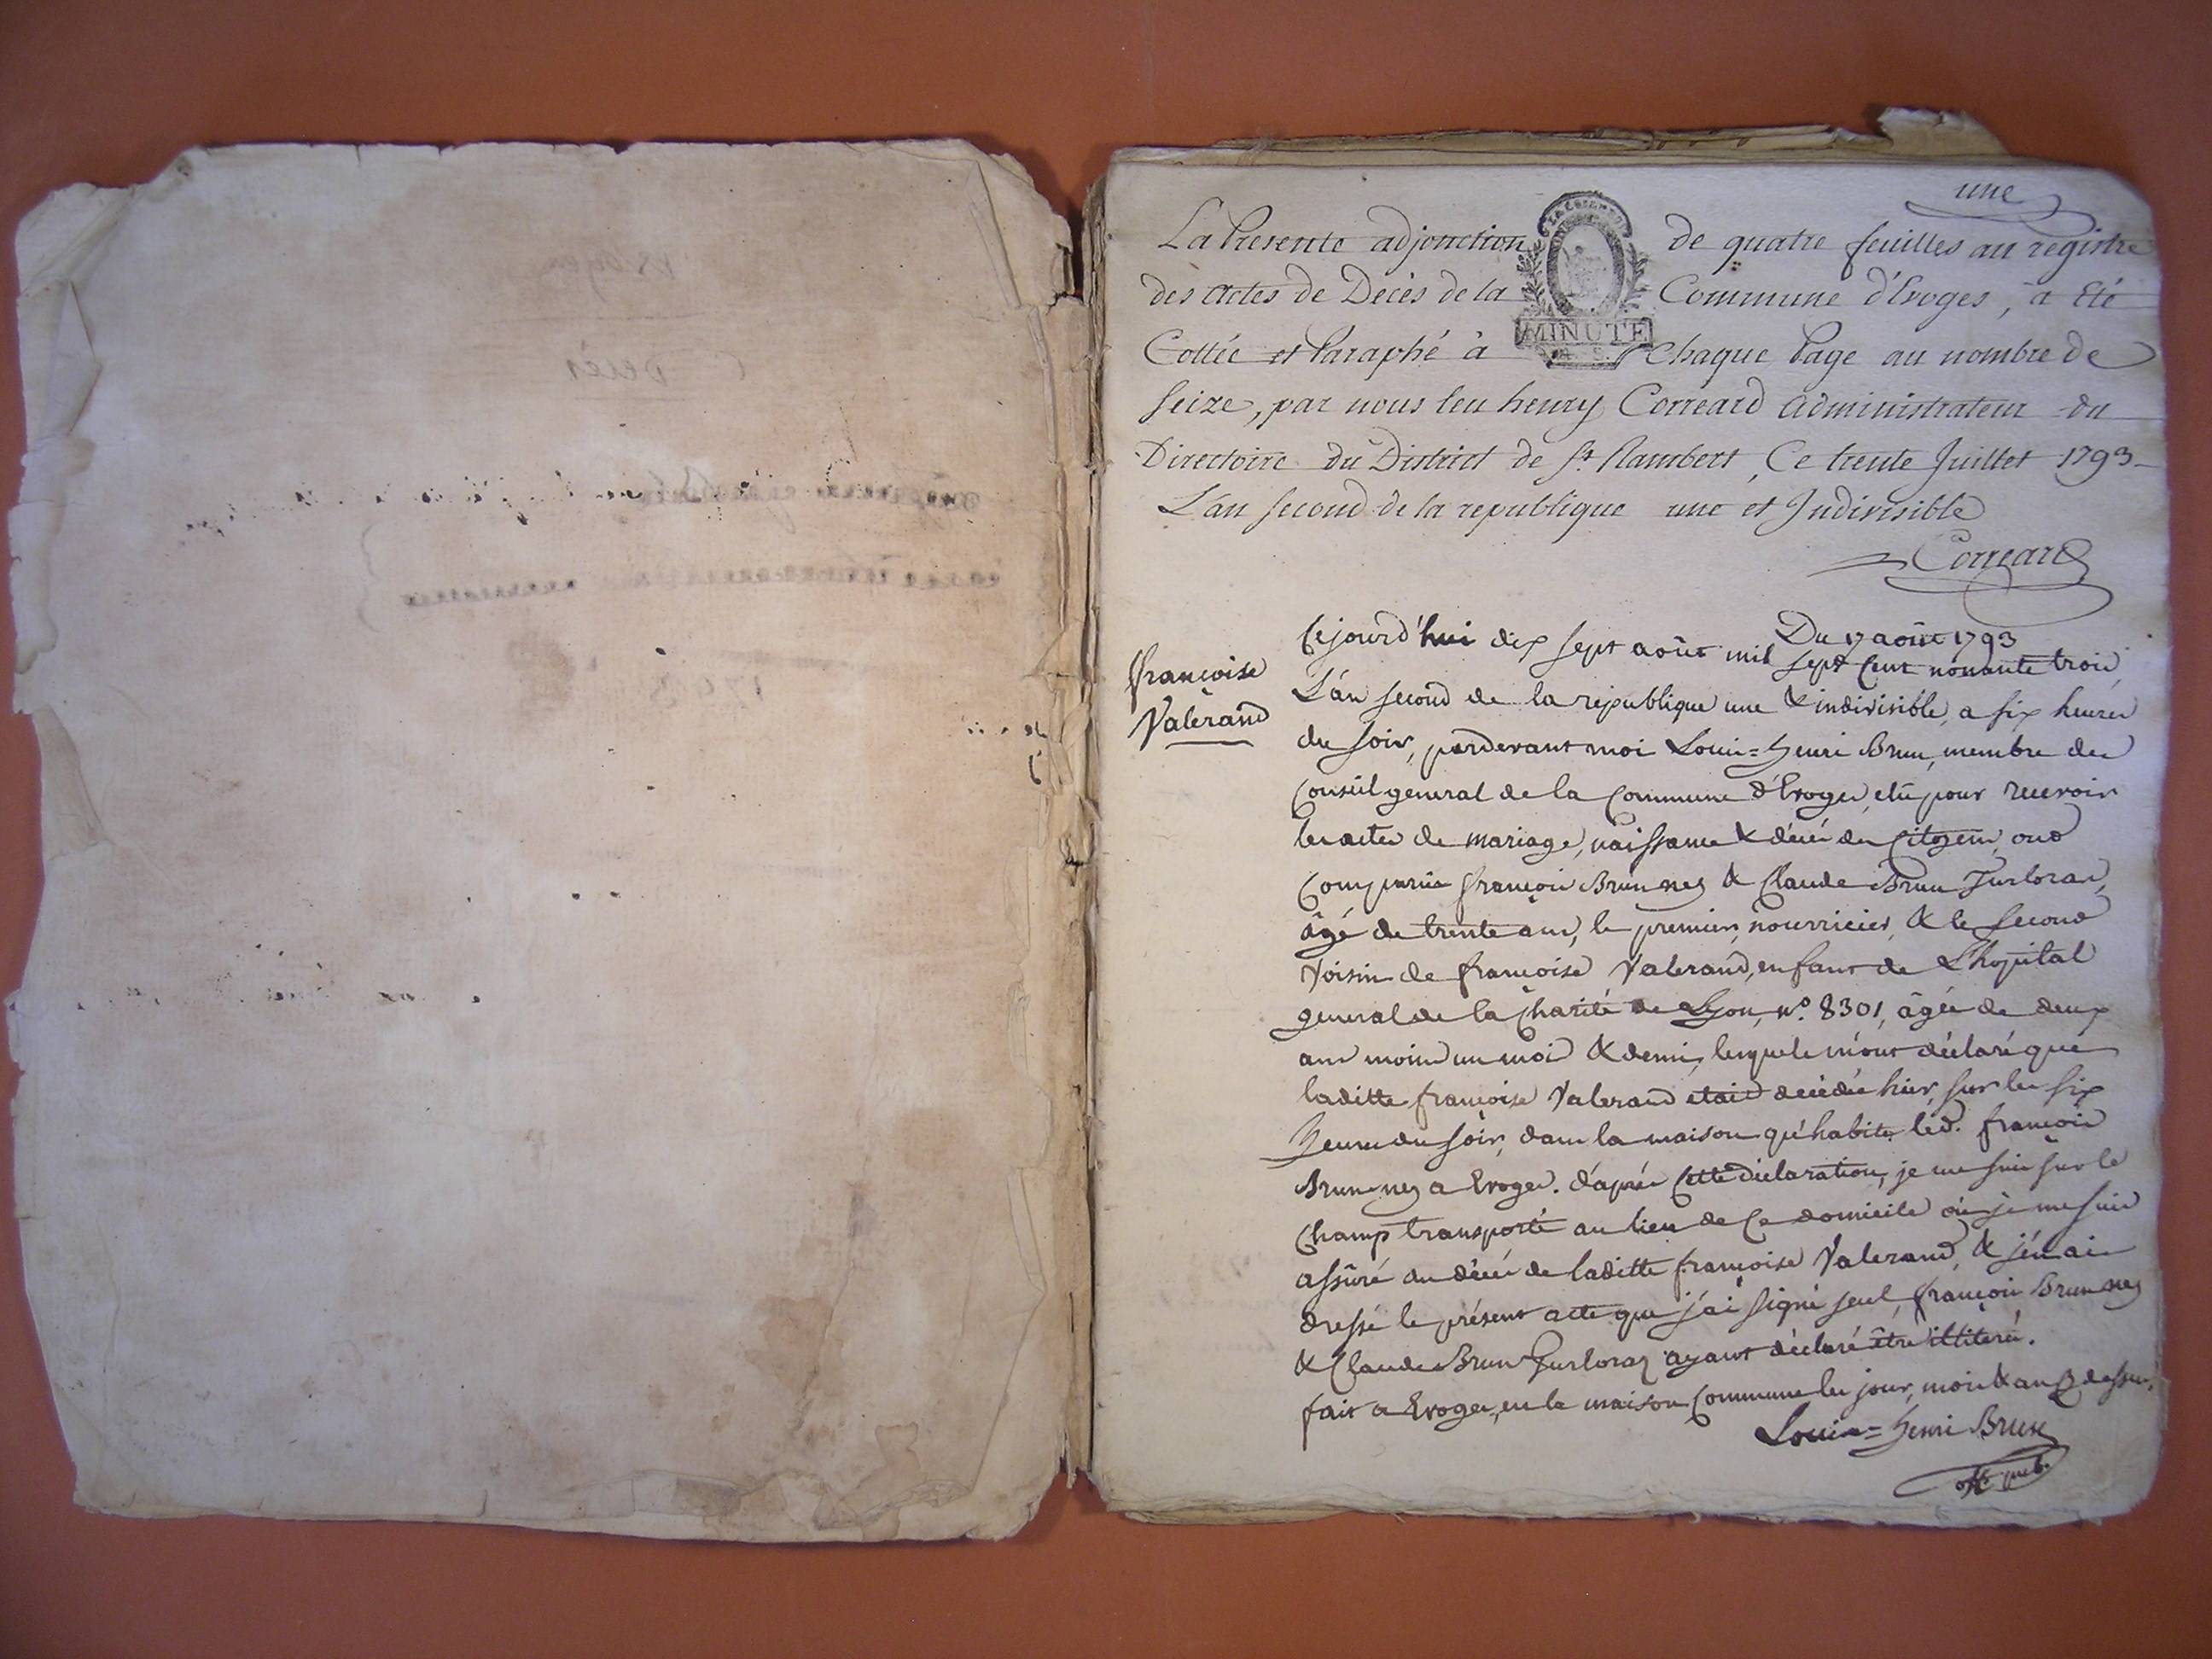 une
La Presente adjonction de quatre feuilles au registre
des Actes de Décès de la Commune d'Evoges, a Eté
Cottée et Paraphé à Chaque Page au nombre de
Seize, par nous leu henry Correard Administrateur du
Directoire du District de St Rambert, Ce trente Juillet 1793
L'an second de la republique une et Indivisible
Correard
MINUTE
françoise
Valerand
Du 17 août 1793
Cejourd'hui dix sept août mil sept cent nonante trois,
L'an second de la république une & indivisible, a six heures
du soir, pardevant moi Louis=henri Brun, membre du
Conseil general de la Commune d'Evoges, elu pour recevoir
les actes de mariage, naissance & décés des Citoyens, ond
Comparus françois Brun nez & Claude Brun Jurloraz,
âgé de trente ans, le premier, nourricier, & le second
Voisin de françoise Valerand, enfant de L'hopital
general de la Charité de Lyon, N.º 8301, âgée de deux
ans moins un mois & demi, lesquels m'ont déclaré que
laditte françoise Valerand etait décédée hier, sur les six
heures du soir, dans la maison qu'habite led. françois
Brun nez a Evoges. d'après Cette déclaration, je me suis sur le
Champ transporté au lieu de Ce domicile où je me suis
assûré du décés de laditte françoise Valerand, & j'en ai
dressé le présent acte que j'ai signé seul, françois Brun nez
& Claude Brun Jurloraz ayant déclaré être illiterés.
fait a Evoges, en la maison Commune les jour, mois & an cy dessus.
Louis=henri Brun
off. pub.